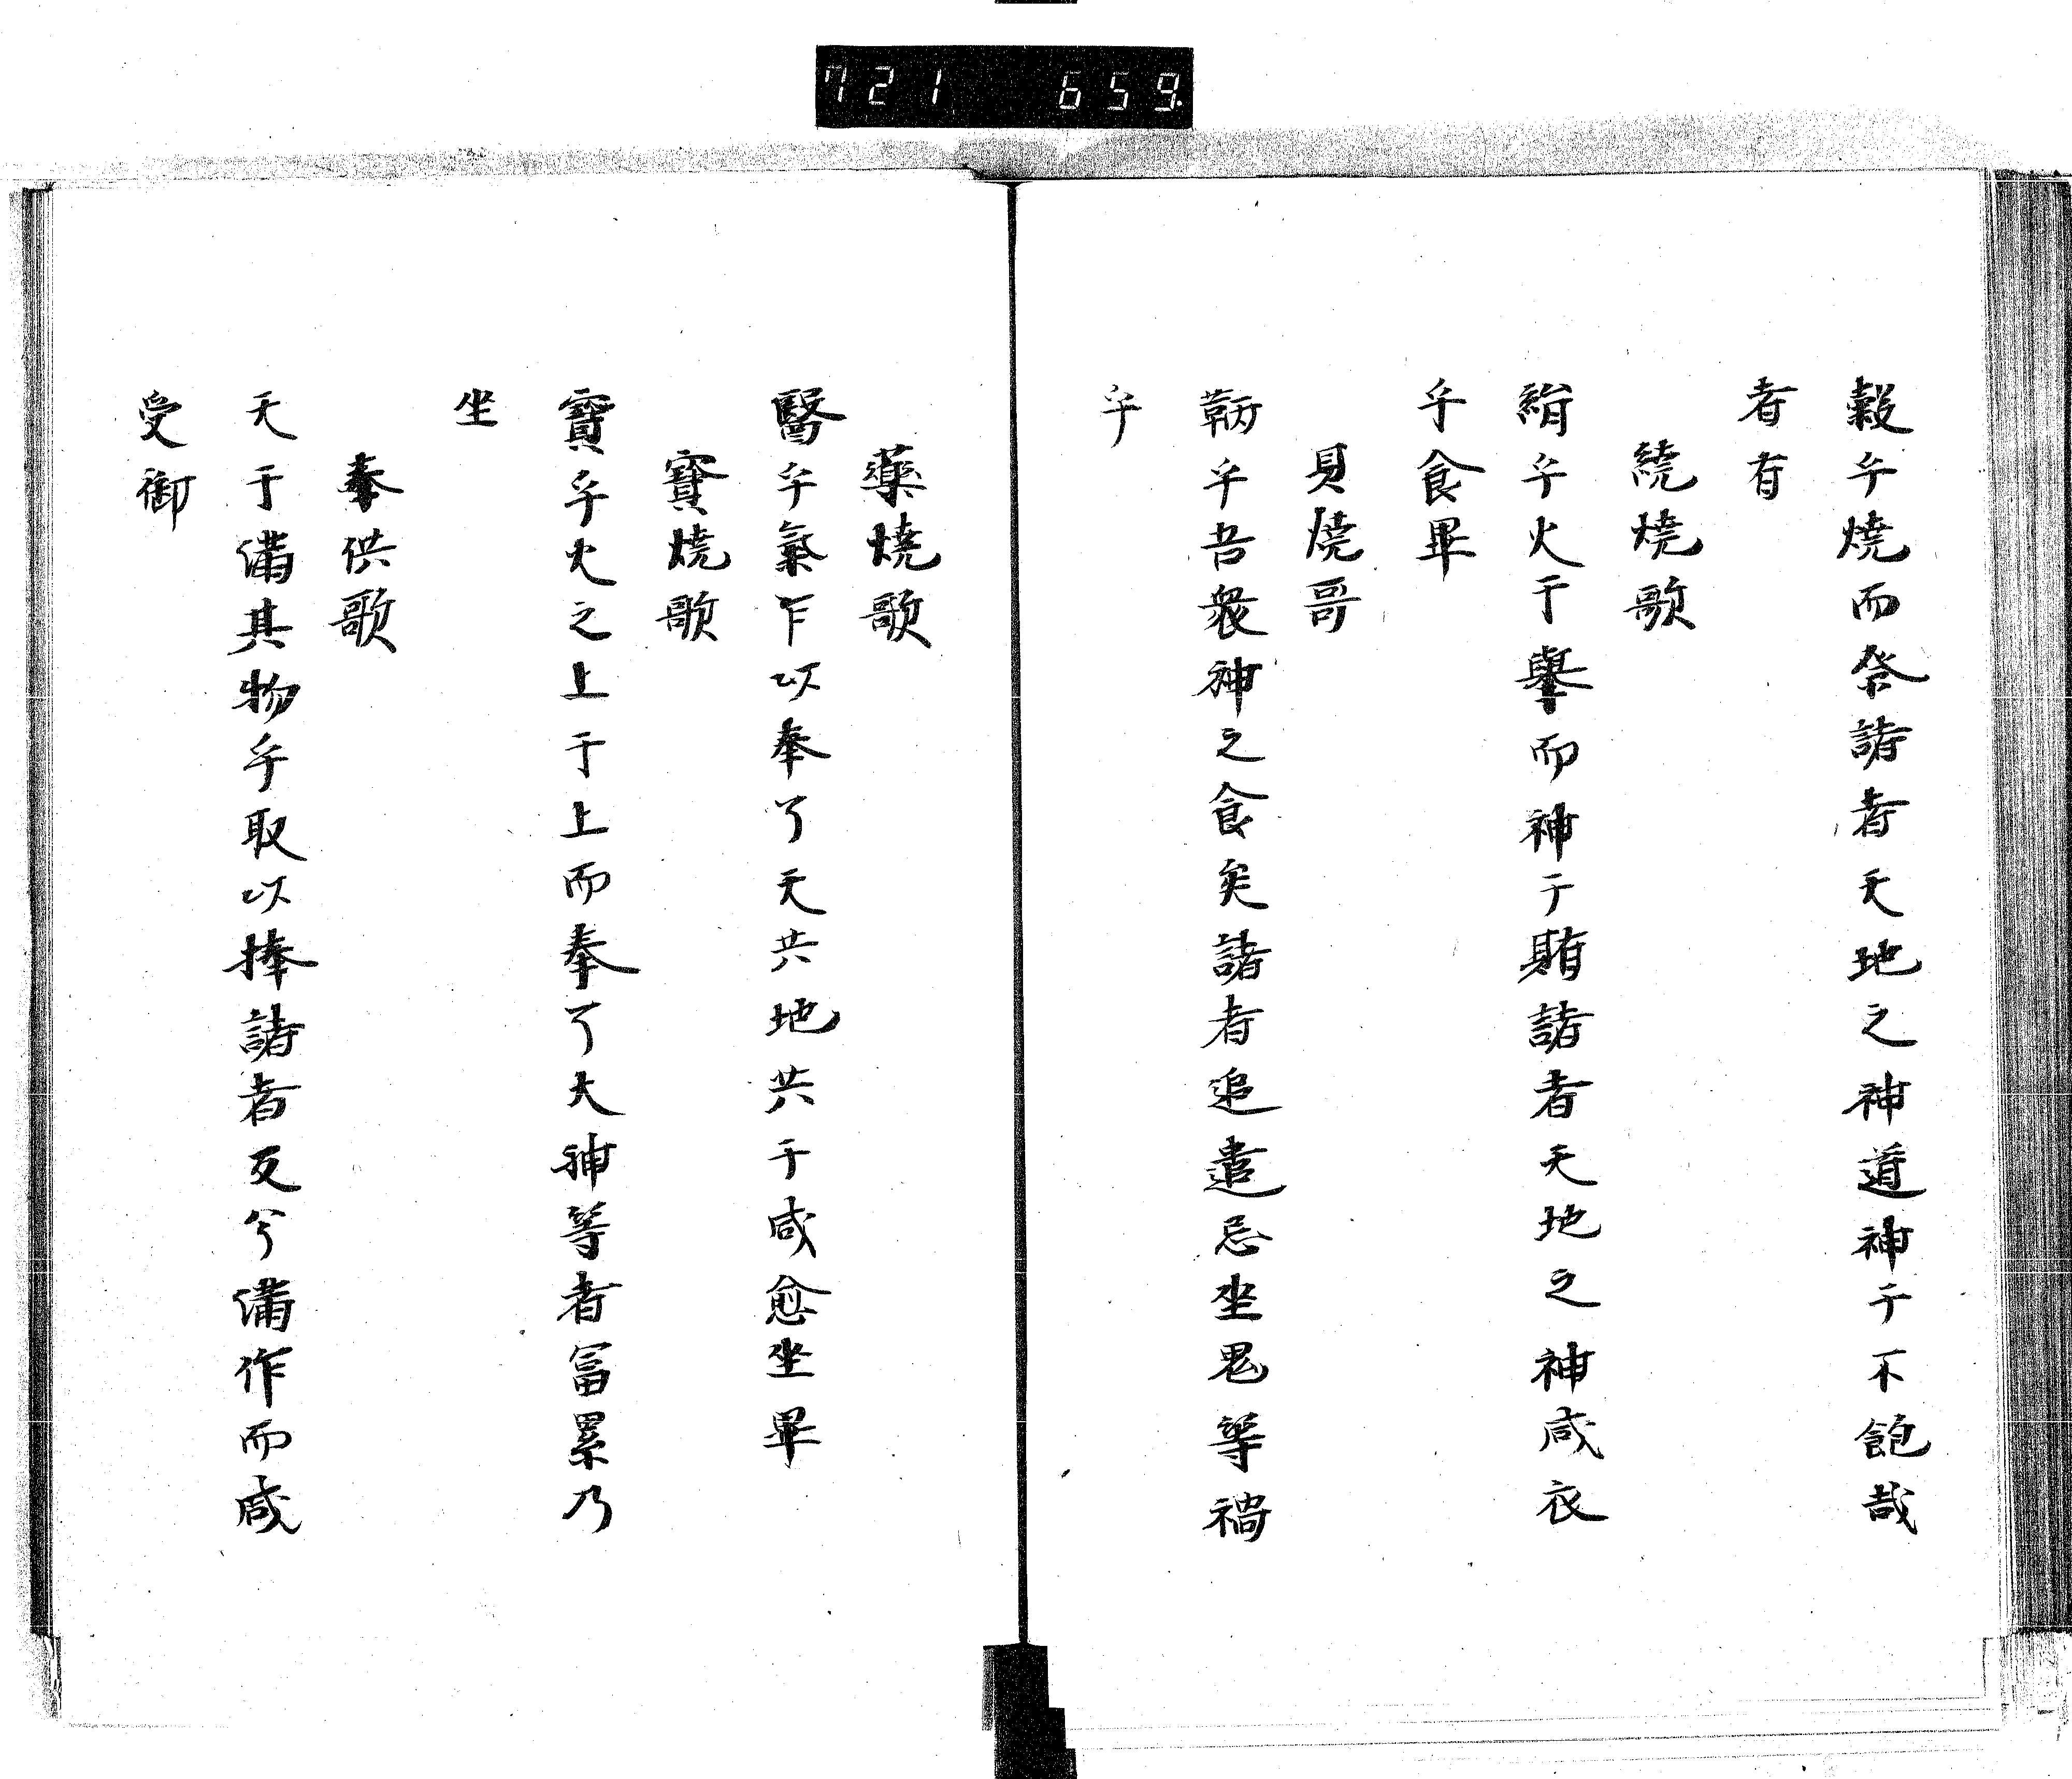 721 659
糓乎燒而祭諸者天地之神道神于不飽哉
者有
繞燒歌
絹乎火于擧而神于賄諸者天地之神咸衣
乎食畢
貝燒哥
鞆乎吾衆神之食矣諸者追遣忌坐鬼等禍
乎
藥燒歌
醫乎氣乍以奉了天共地共于咸愈坐畢
寶燒歌
寶乎火之上于上而奉了大神等者冨累乃
坐
奉供歌
天于備其物乎取以捧諸者反兮備作而咸
受御